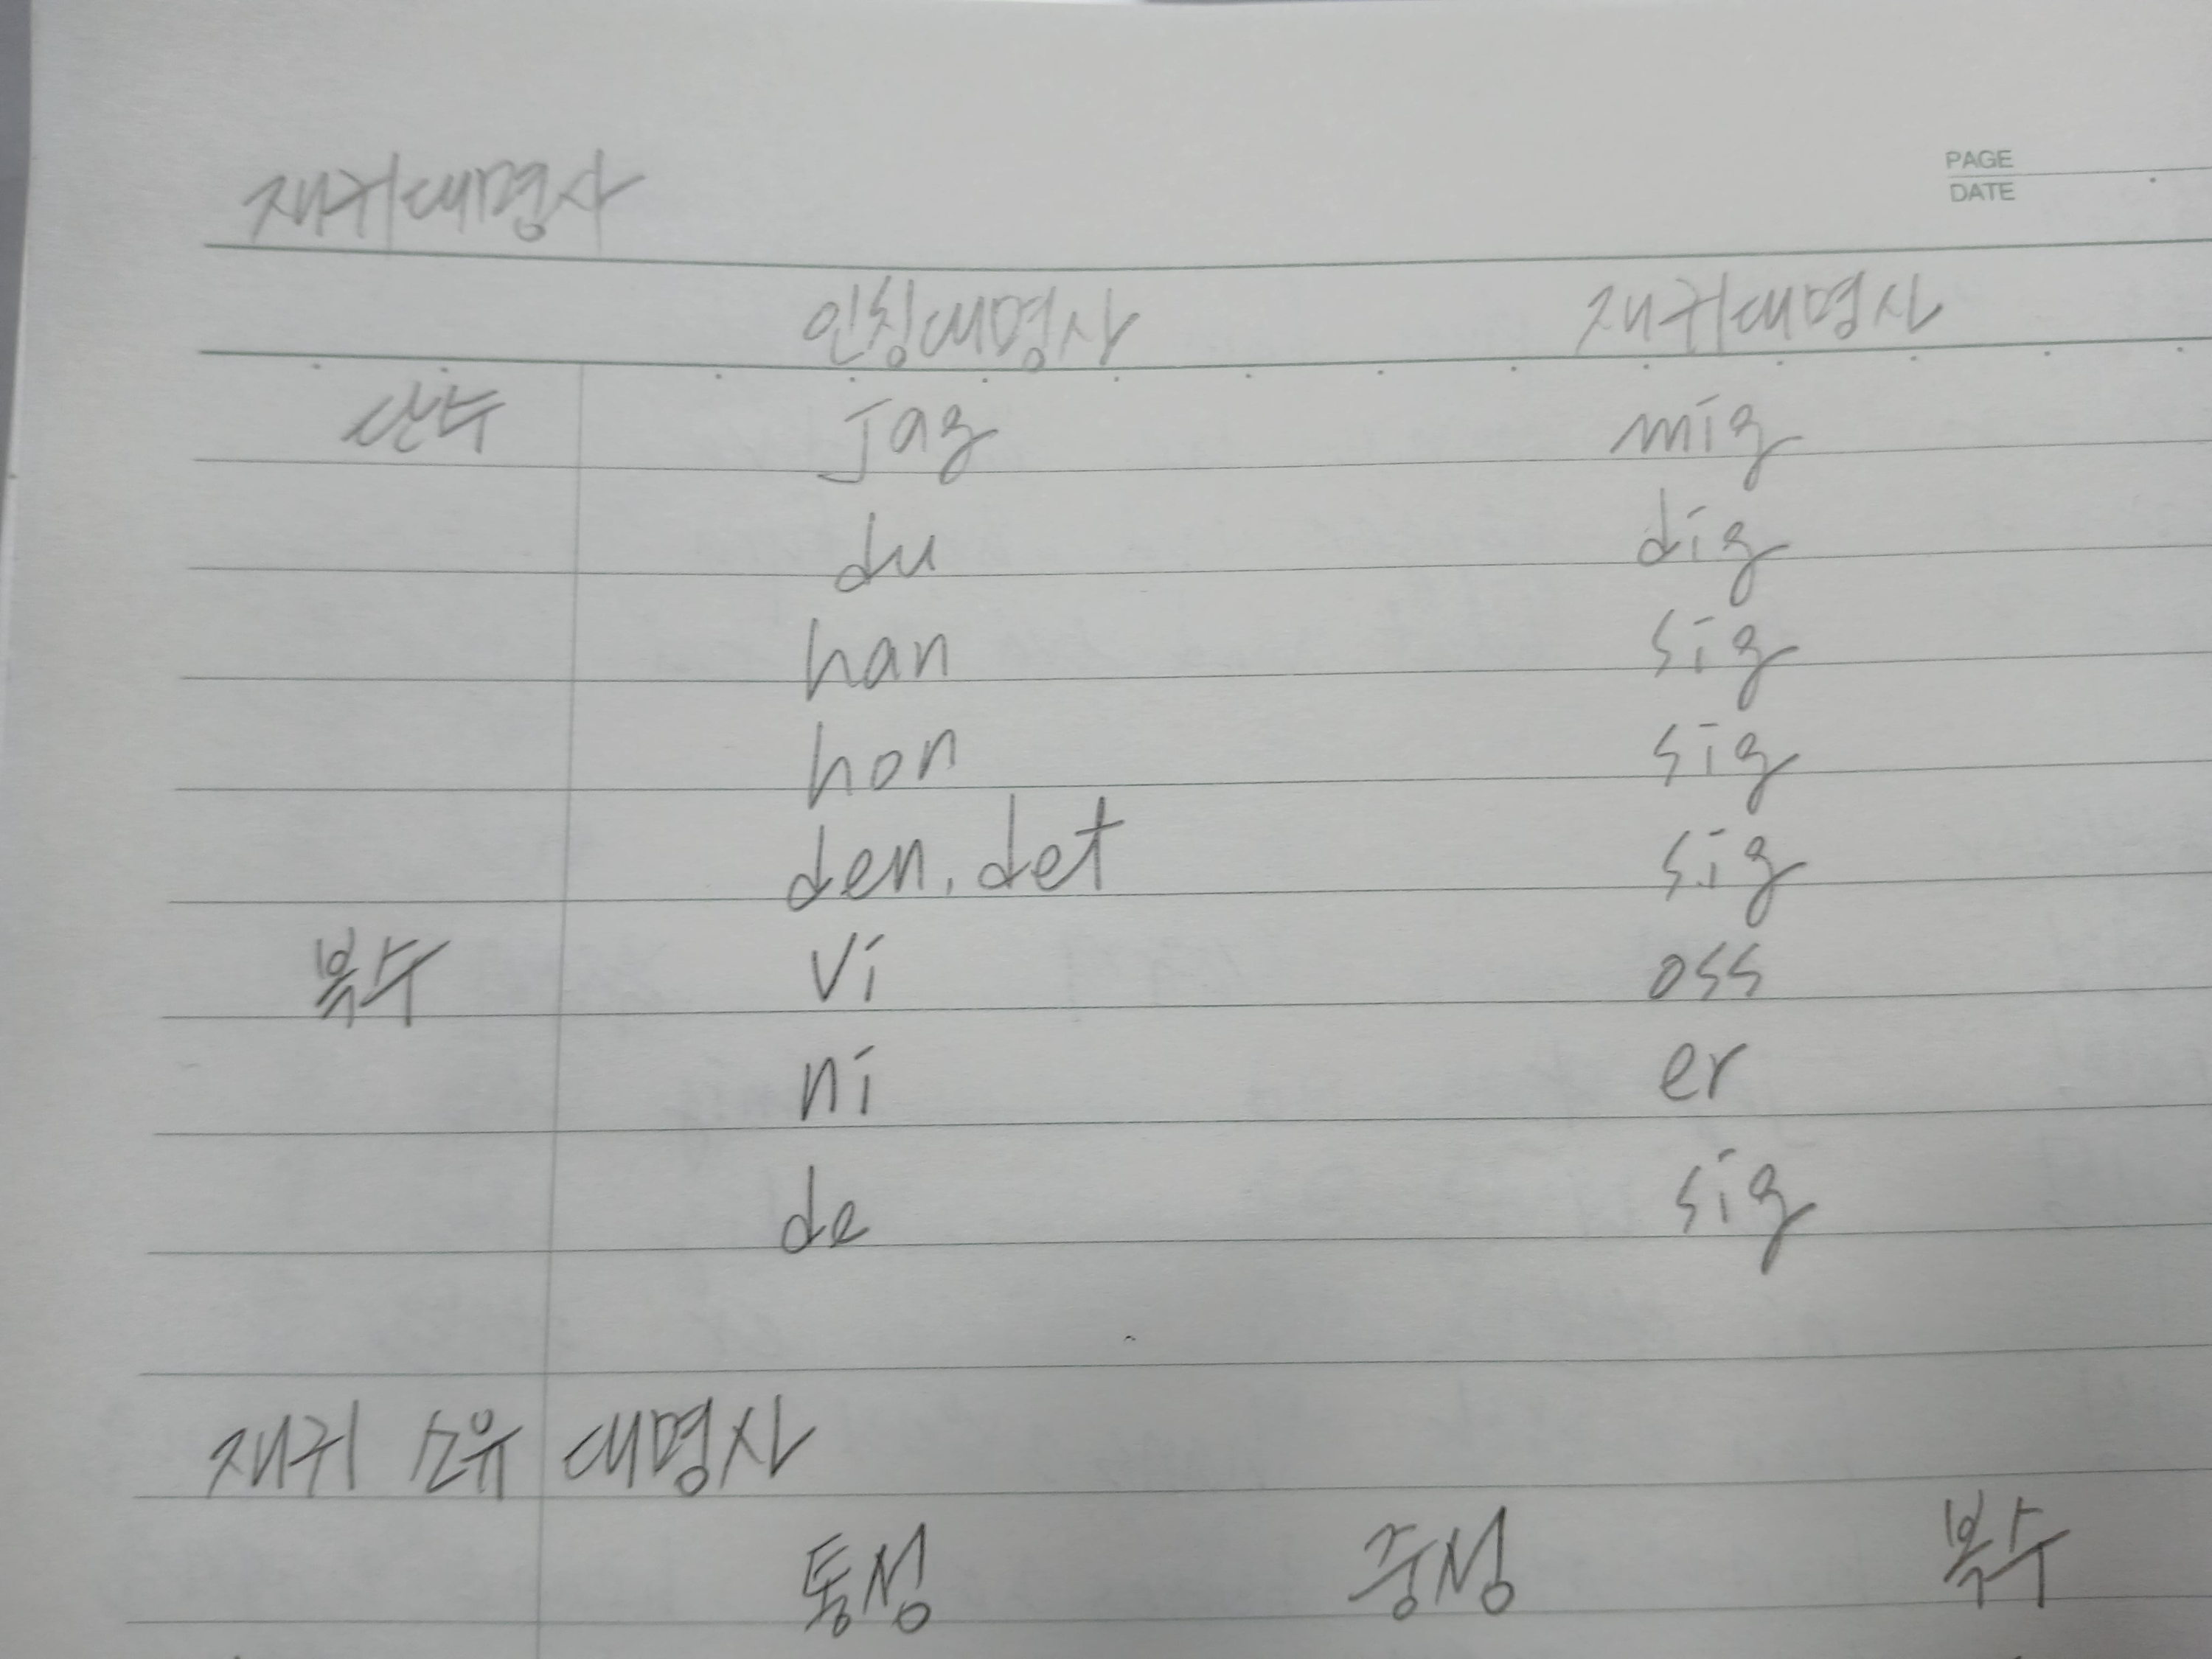 PAGE
DATE
재귀대명사
인칭대명사 재귀대명사
단수 jag mig
du dig
han sig
hon sig
den, det sig
복수 vi oss
ni er
de sig
재귀 소유 대명사
통성 중성 복수